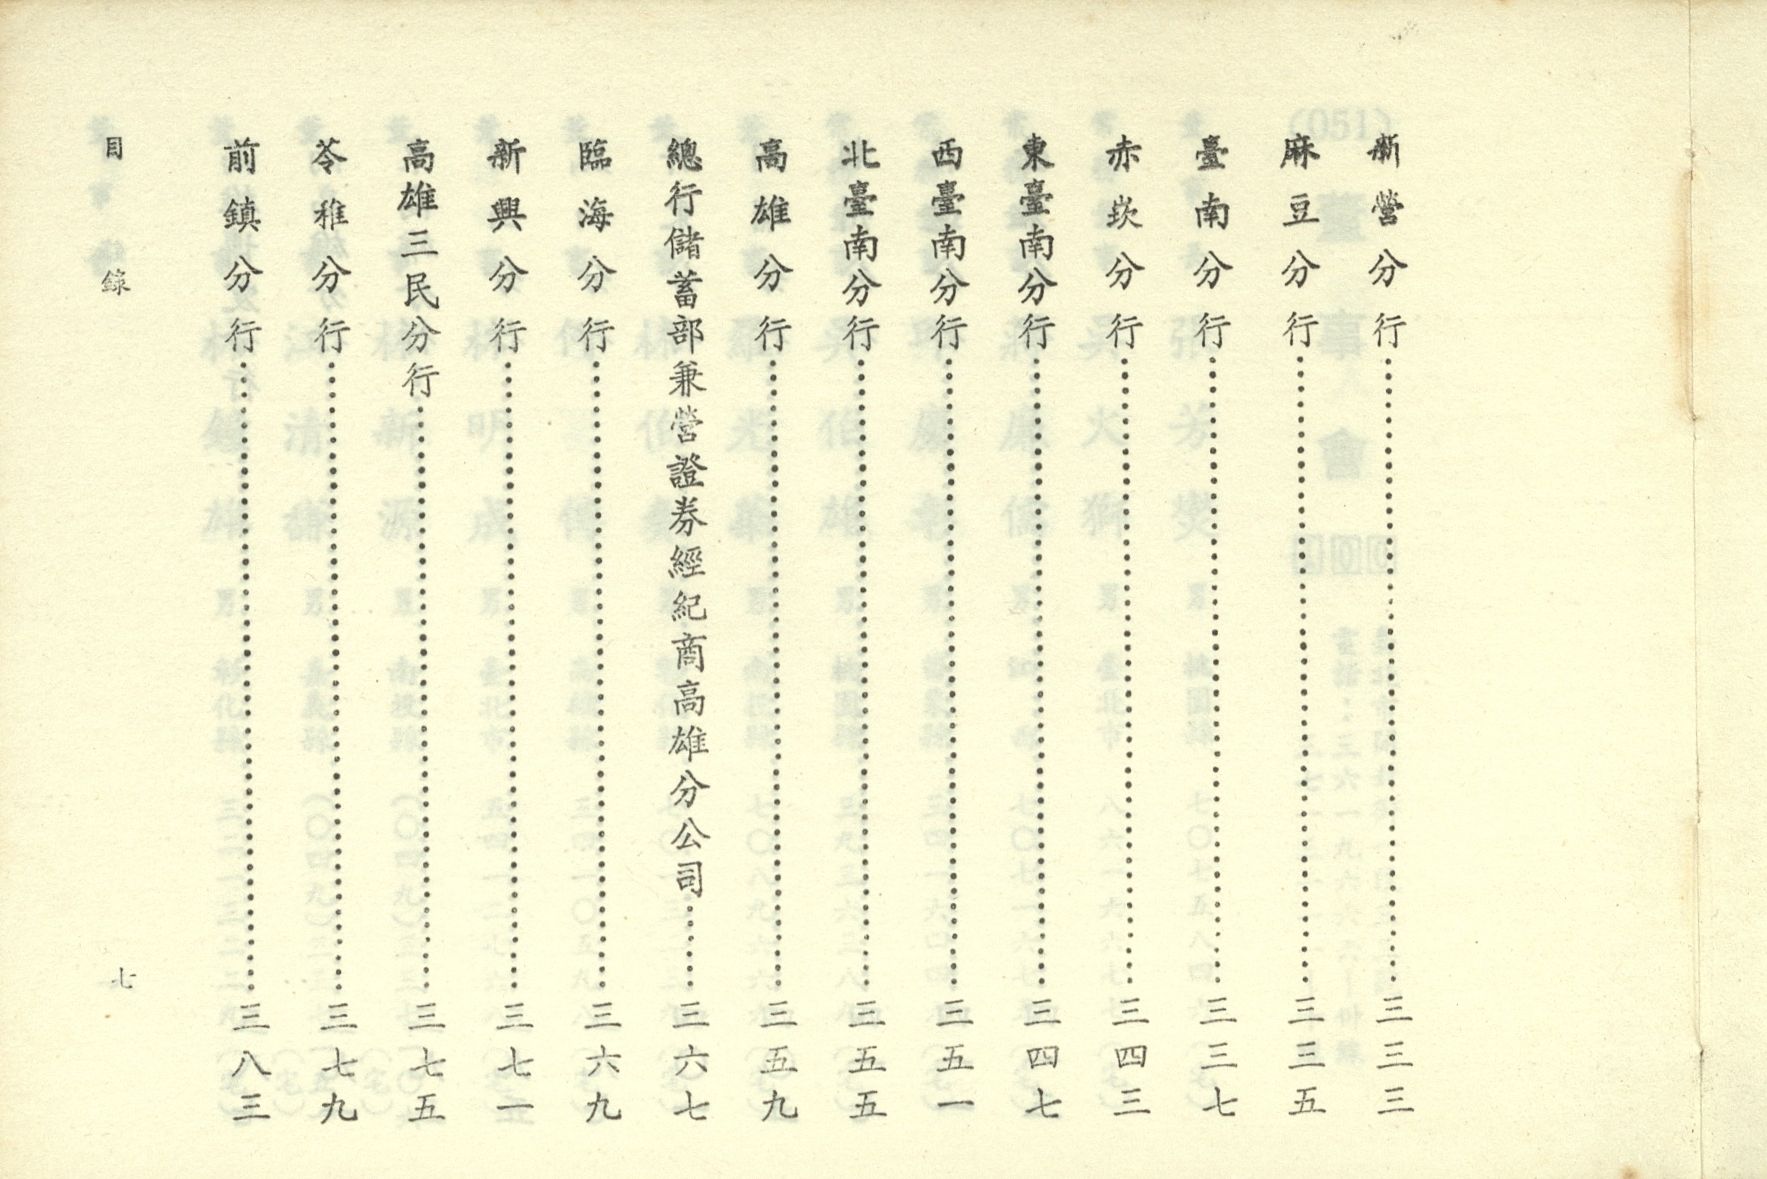 新營分行……三三三
麻豆分行……三三五
臺南分行……三三七
赤崁分行……三四三
東臺南分行……三四七
西臺南分行……三五一
北臺南分行……三五五
高雄分行……三五九
總行儲蓄部兼營證券經紀商高雄分公司……三六七
臨海分行……三六九
新興分行……三七一
高雄三民分行……三七五
苓稚分行……三七九
前鎮分行……三八三
目錄
七